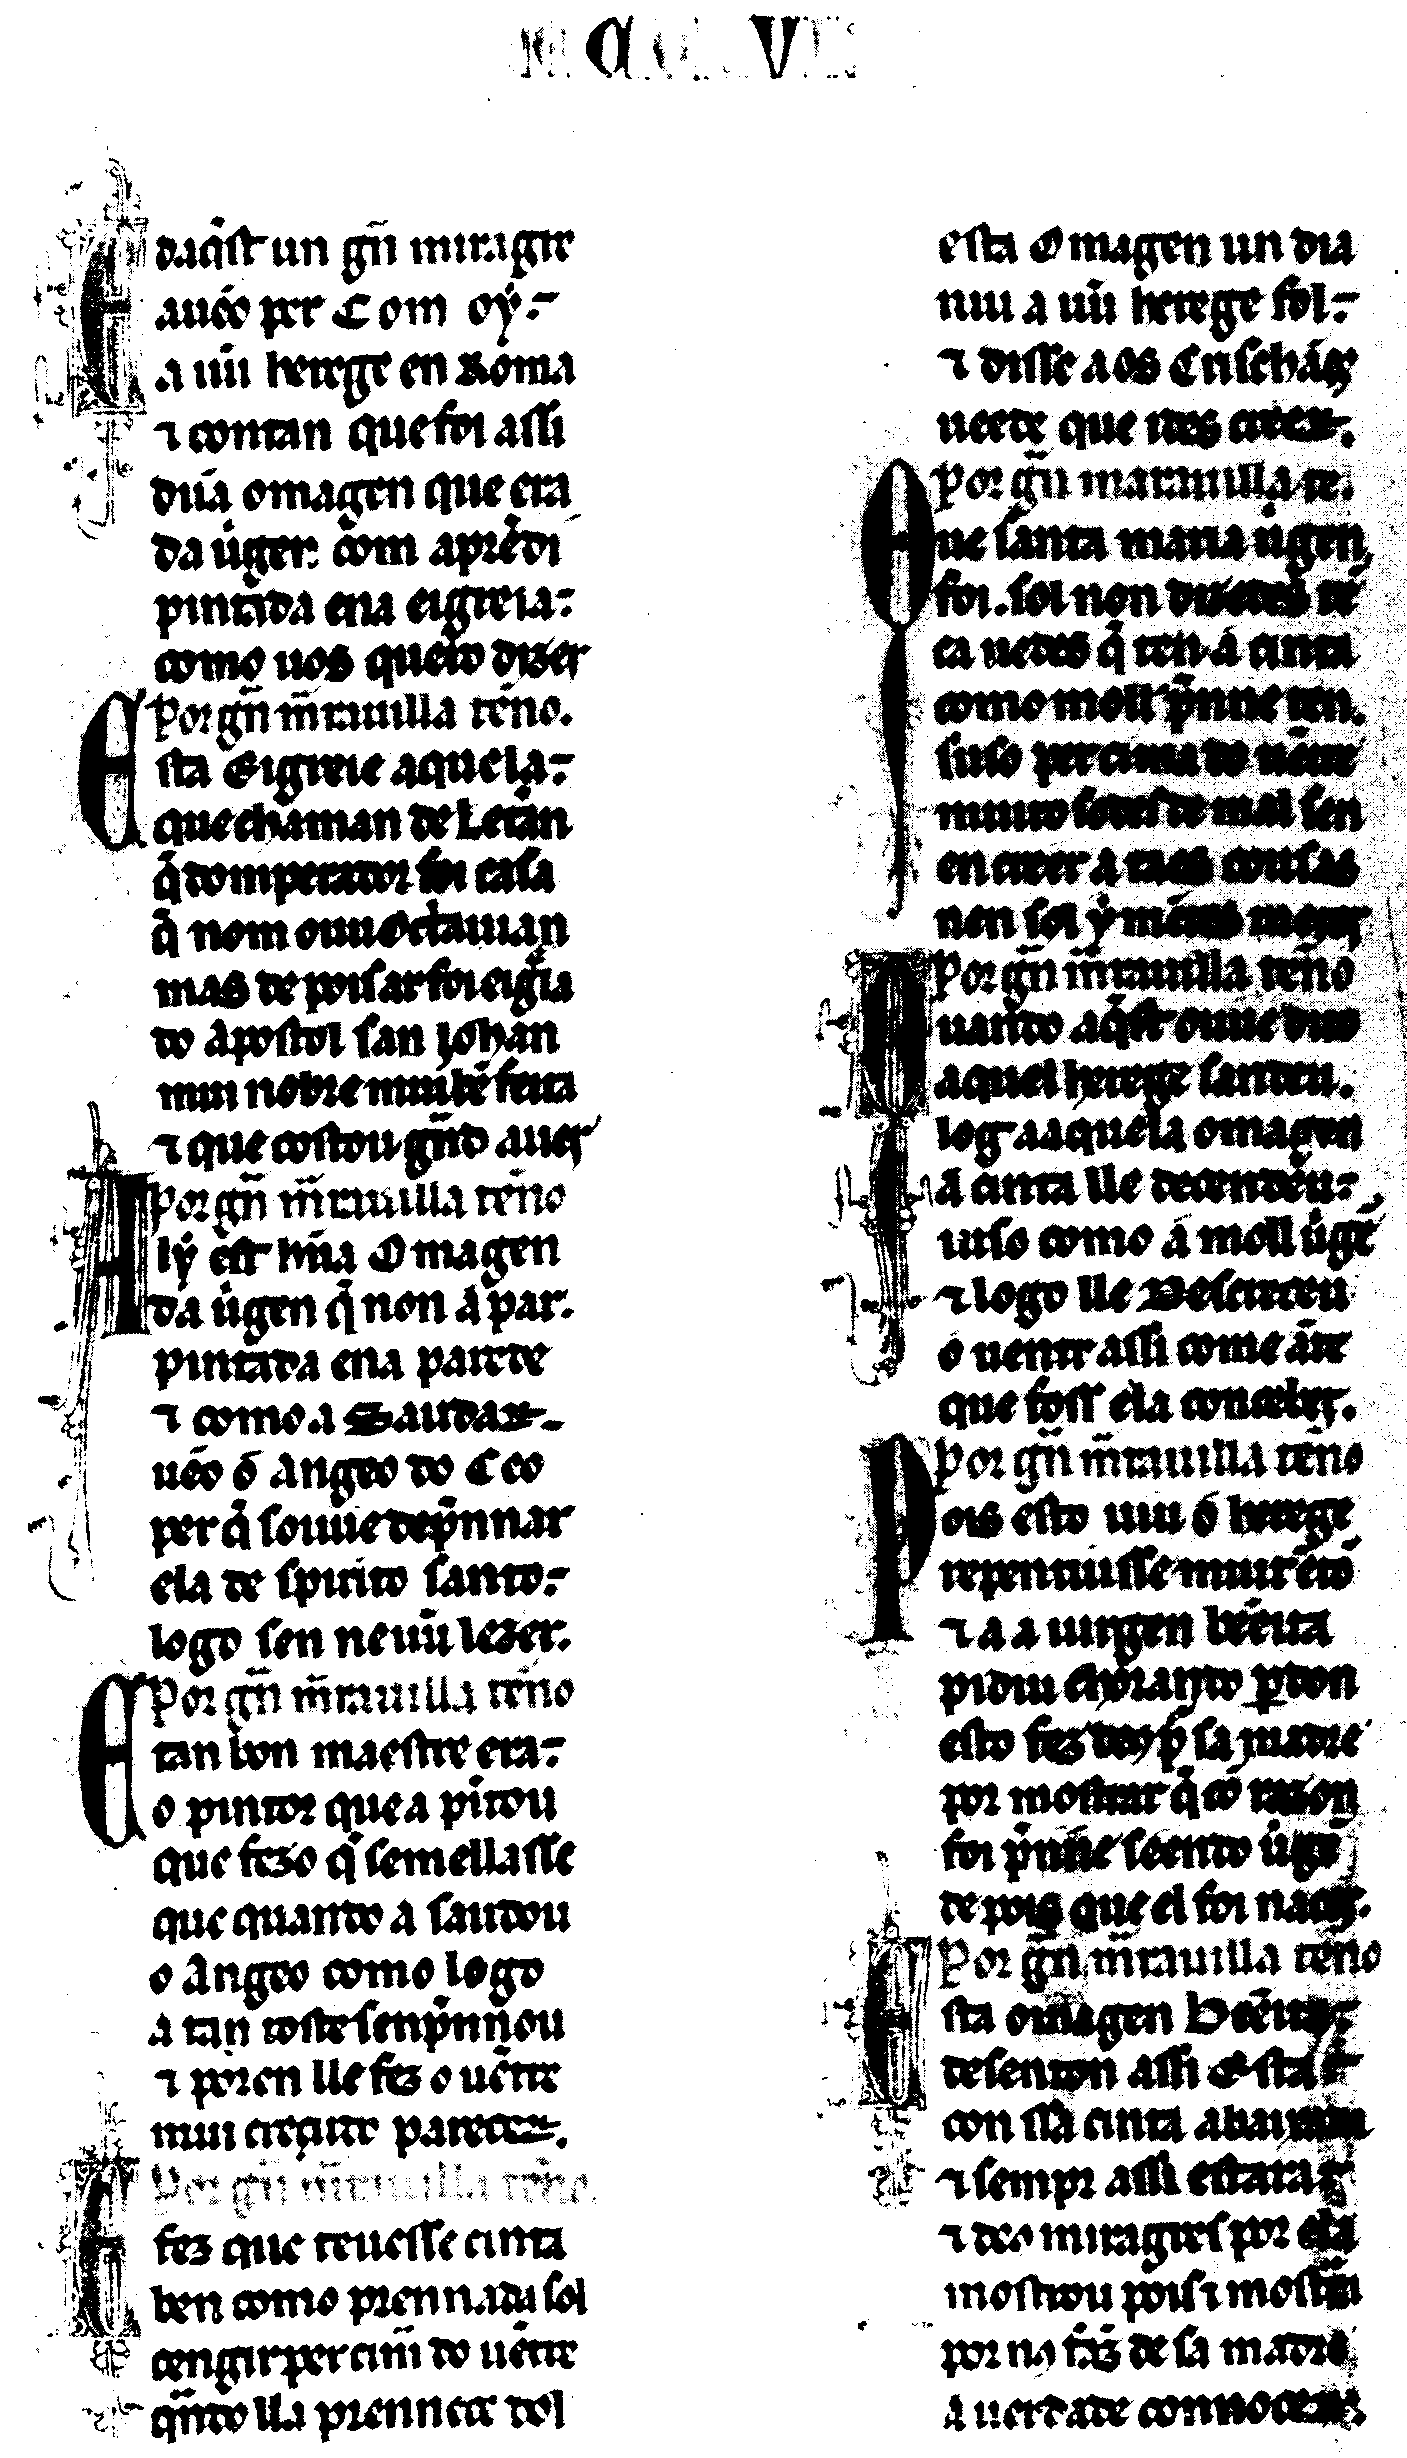 E daq̃st un gñ miragre
aue͂o per Com oý
a uũ herege en Roma
⁊ contan que foi assi
dũa omagen que era
da uirgen. com aprẽdi
pintada ena eigreia
como uos quero dizer
Por gñ m̃rauilla teño.
Esta Eigreie aquela
que chaman de Letrán
q̃ d omperador foi casa
q̃ nom ouu Octauian
mas depois ar foi eigria
do apostol san Johan
mui nobre mui bẽ feita
⁊ que costou gñd auer
Por gñ m̃rauilla teño
Alý est hũa Omagen
da uirgen q̃ non á par.
pintada ena parede
⁊ como a Saudar
uẽo ó Angeo do Ceo
per q̃ souue de prennar
ela de spirito santo
logo sen neuũ lezer.
Por gñ m̃rauilla teño
E tan bon maestre era
o pintor que a pĩtou
que fezo q̃ semellasse
que quando a saudou
o Angeo como logo
a tan toste s enprennou
⁊ poren lle fez o uẽtre
mui creçudo pareçer.
Por gñ m̃rauilla teño.
E fez que teuesse cinta
ben como prennada sol
cengir per cima do uẽtre
quando lla prennece dol
esta Omagen un dia
uiu a uũ herege fol
⁊ disse aos Crischãos
ueede que ides creer.
Por gñ marauilla te.
Que santa maria uirgen
foi. sol non dulcedes rẽ
ca uedes q̃ ten á cinta
como moll prenne ten.
suso per cima do uẽtre
muito sodes de mal sen
en creer a taes cousas
nen sol ý mẽtes meter
Por gñ m̃rauilla teño
Quando aq̃st ouue dito
aquel herege sandeu.
log a aquela omagen
á cinta lle decendeu
iuso como á moll uirgẽ
⁊ logo lle Descreceu
o uentr assi come ãte
que foss ela conceber.
Por gñ m̃rauilla teño
Pois esto uiu ó herege
repentiusse muit ẽtõ
⁊ a a uirgen bẽeita
pidiu chorando perdon
esto fez deus por sa madre
por mostrar q̃ cõ razon
foi prenne seendo uirgẽ
depois que el foi nacer.
Por gñ m̃rauilla teño
Esta omagen Bẽeita
desenton assi Esta
con ssa cinta abaixada
⁊ sempr assi estara
⁊ deo miragres por ela
mostrou pois ⁊ mostra
por nos fazer de sa madre
a uerdade connocer.